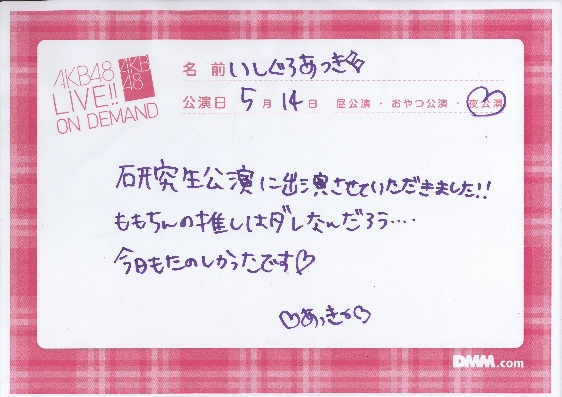 AKB48
LIVE!!
ON DEMAND
AKB
48
名前 いしぐろあっき
公演日 5月14日 昼公演・おやつ公演・夜公演
研究生公演に出演させていただきました!!
ももちんの推しはダレなんだろう....
今日もたのしかったです♡
♡あっきー♡
DMM.com